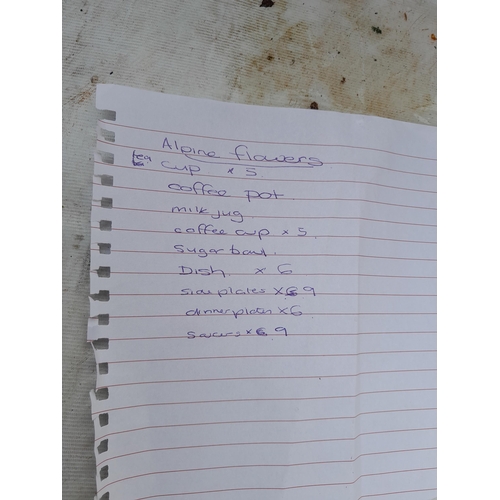 Alpine flowers
tea cup x 5
coffee pot.
milk jug
coffee cup x 5
sugar bowl.
Dish x 6
side plates x 9
dinner plates x 6
saucers x 9